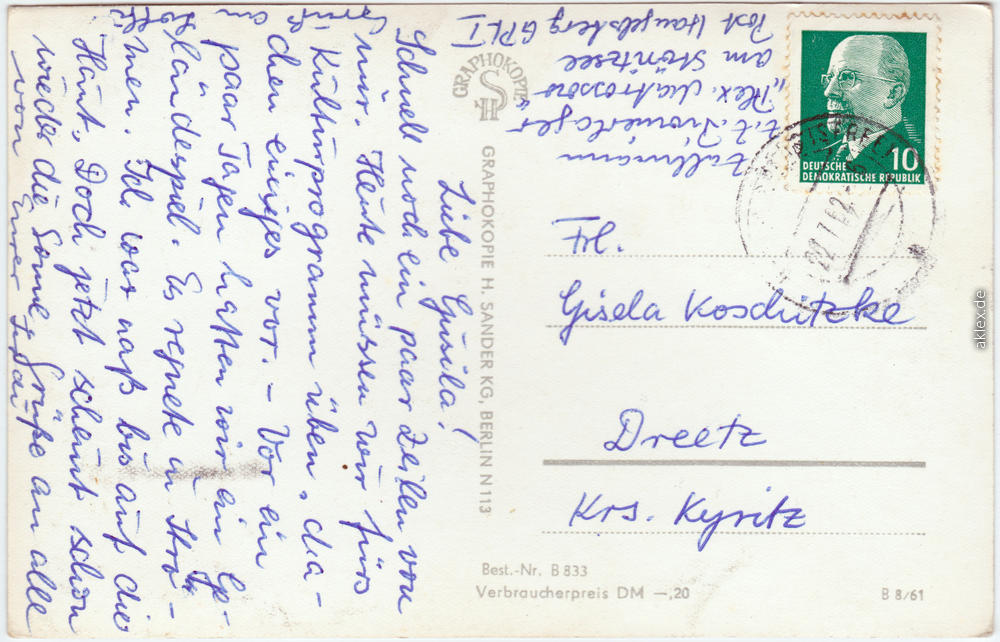 Liebe Gisela!
Schnell noch ein paar Zeilen von
mir. Heute müssen wir fürs
Kulturprogramm üben, da-
chen einiges vor. – Vor ein
paar Tagen hatten wir ein Ge-
ländespiel. Es regnete in Strö-
men. Ich war naß bis auf die
Haut. Doch jetzt scheint schon
wieder die Sonne. Grüße an alle
von Eurer
Gruß an
z.Z. Pionierlager
„Alex. Matrossow"
am Störitzsee
Post Hangelsberg GPL I
GRAPHOKOPIE
SH
GRAPHOKOPIE H. SANDER KG, BERLIN N 113
10
DEUTSCHE
DEMOKRATISCHE REPUBLIK
Frl.
Gisela Koschützke
Dreetz
Krs. Kyritz
Best.-Nr. B 833
Verbraucherpreis DM —,20
B 8/61
aklex.de